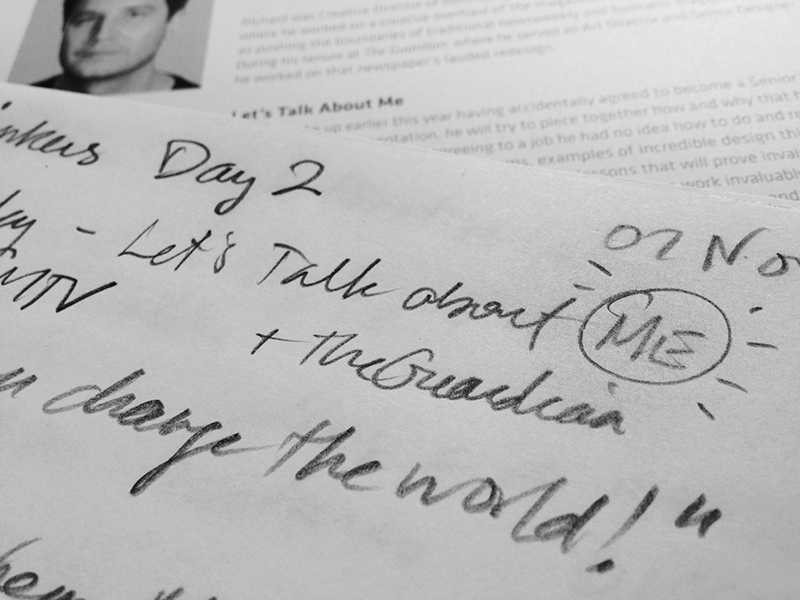 Richard was Creative Director of
where he worked on a creative overhaul of the magazine
as pushing the boundaries of traditional newsweekly and business
During his tenure at The Guardian, where he served as Art Director and Senior Designer
he worked on that newspaper's lauded redesign.
Let's Talk About Me
up earlier this year having accidentally agreed to become a Senior
he will try to piece together how and why that
to a job he had no idea how to do and
examples of incredible design
that will prove
work
and
Day 2
02 Nov
- Let's Talk about ME
MTV
+ theGuardian
change the world!"